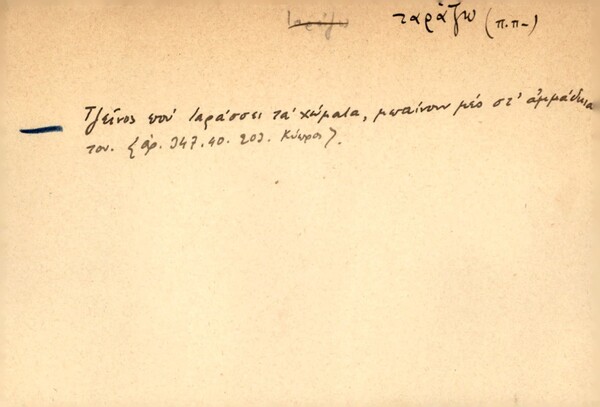 ταράζω
ταράζω (π.π-)
Τζεῖνος ποὺ ταράσσει τὰ χώματα, μπαίνουν μέσ στ' ἀμμάδκια
του. (ἀρ. 347.40.203. Κύπρος).